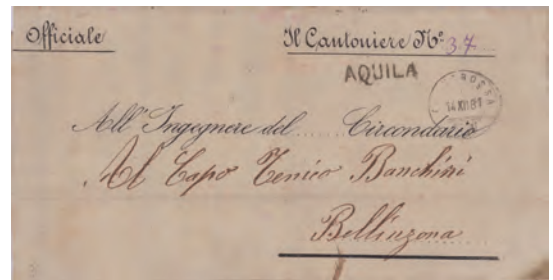 Officiale Il Cantoniere Nº 37
AQUILA
14 XII 81
All' Ingegnere del Circondario
Al Capo Tenico Banchini
Bellinzona